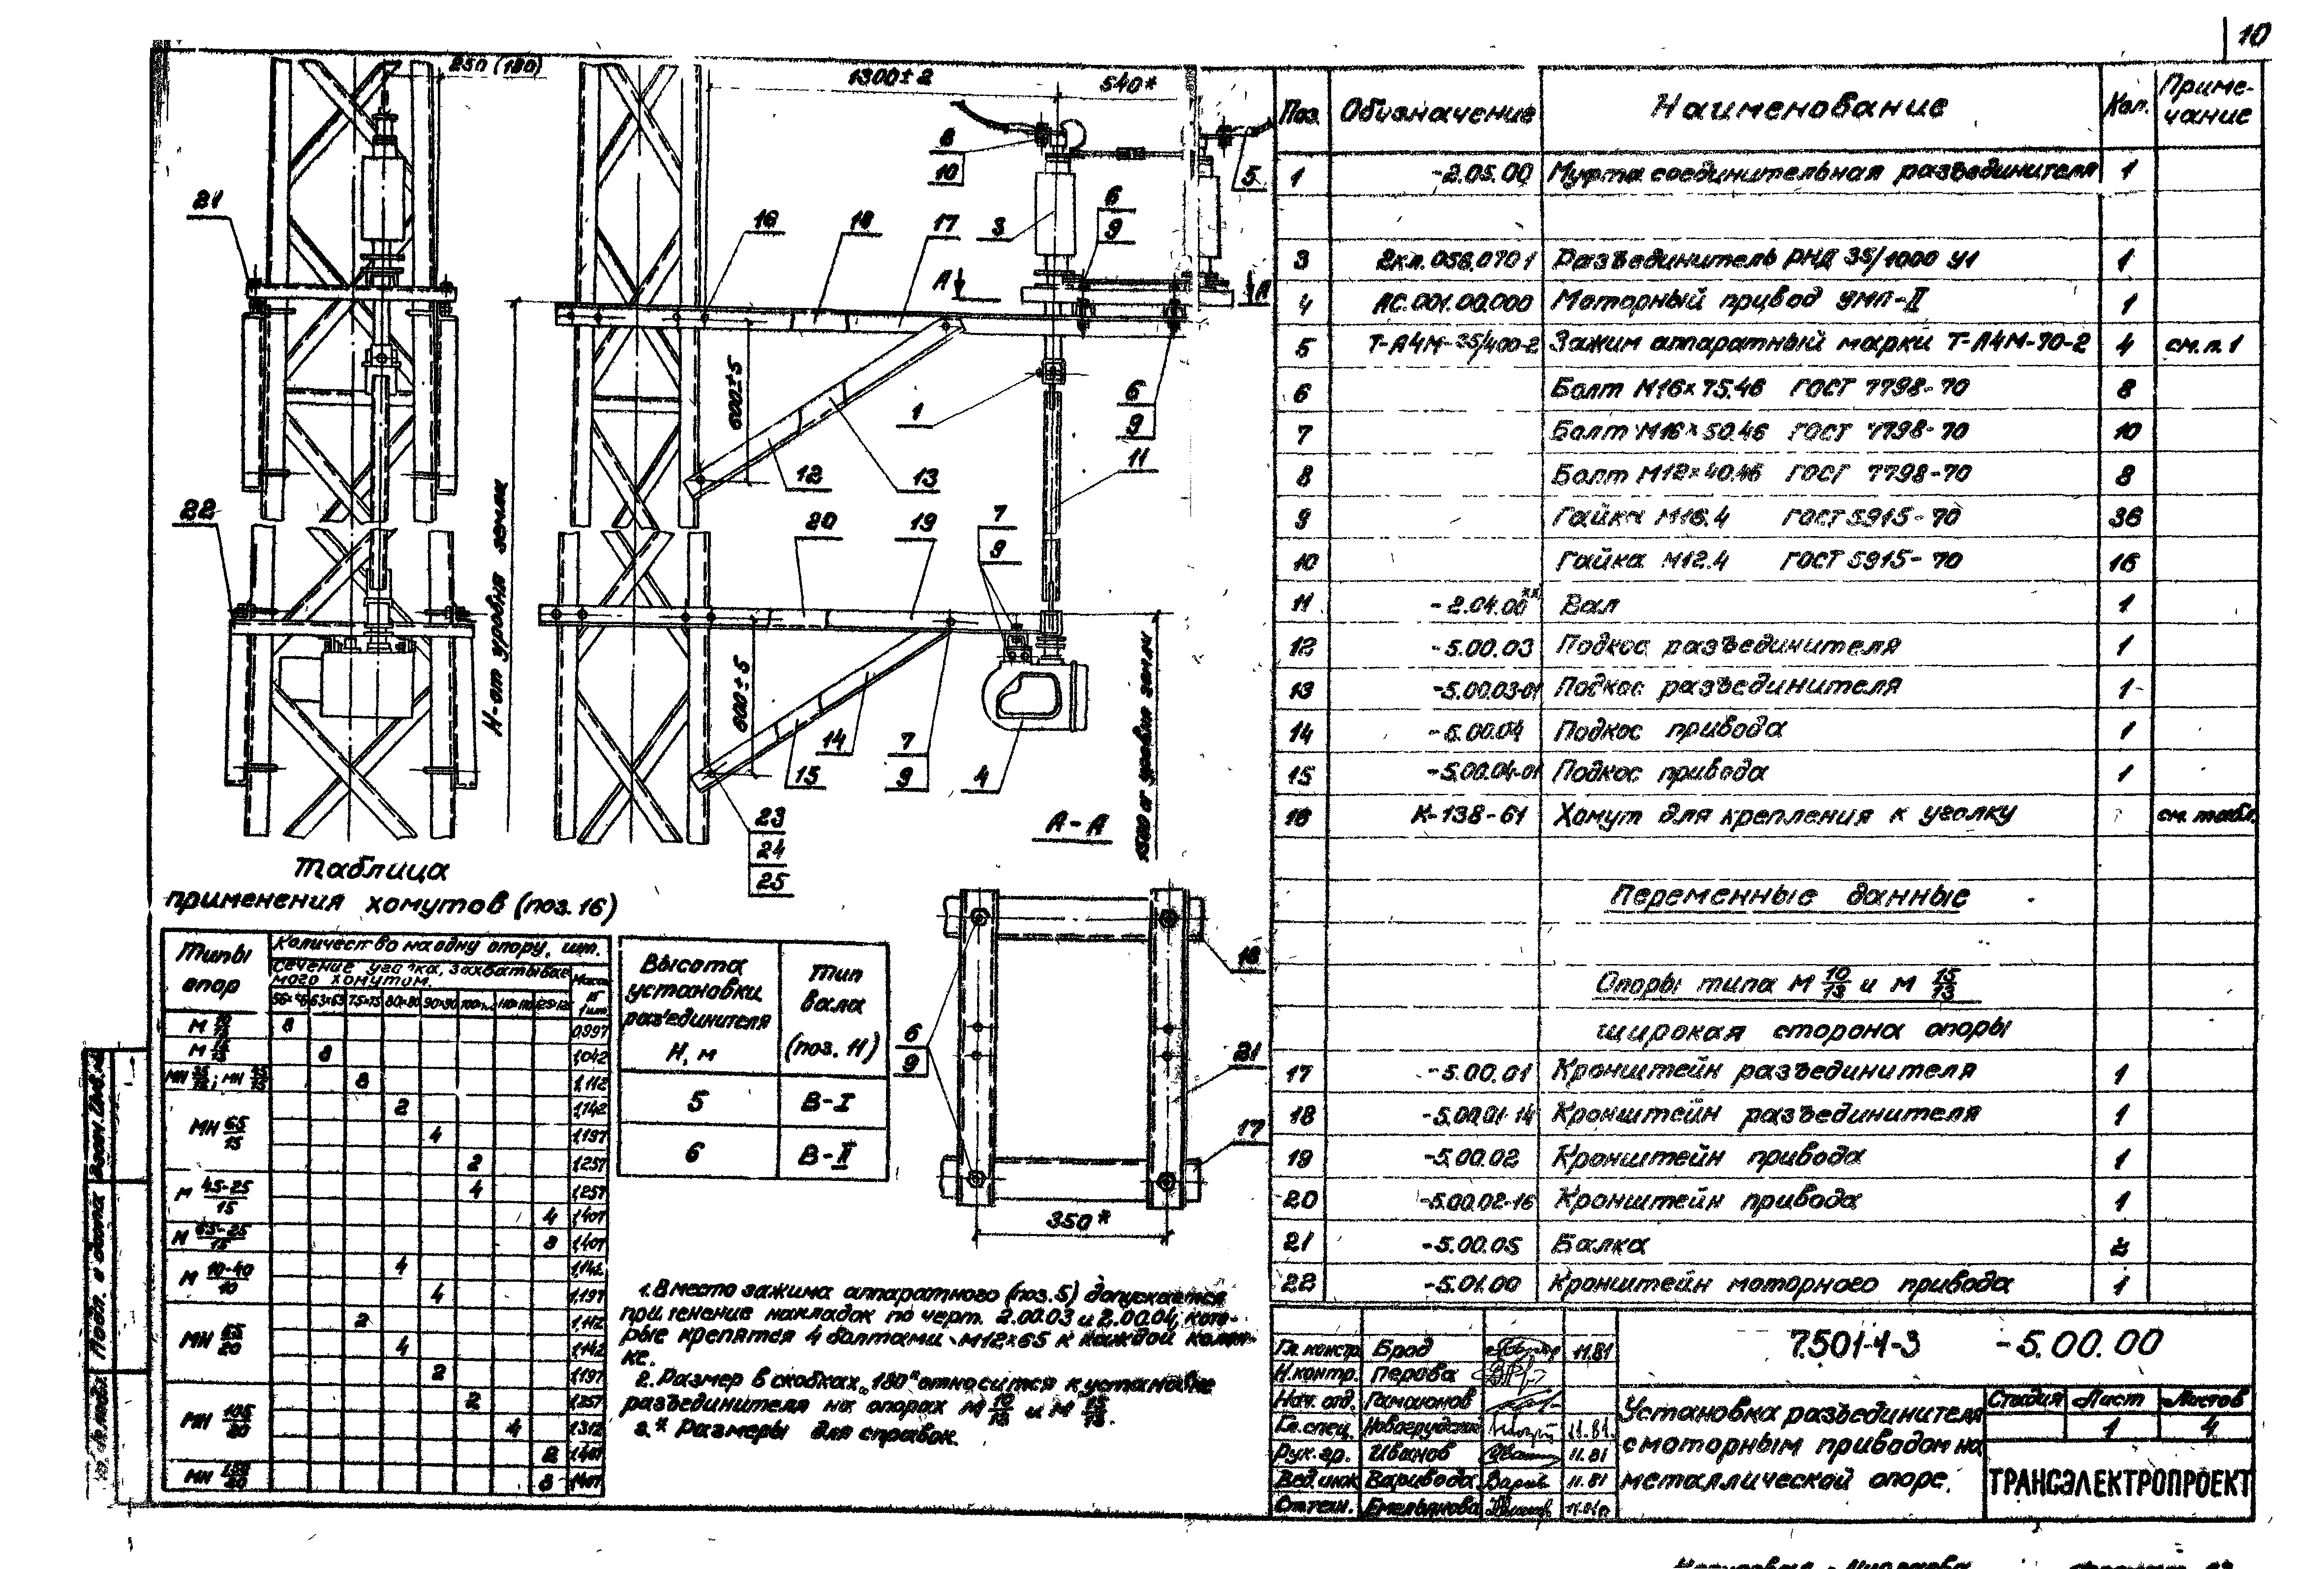 10
250 (180)
1300±2
540*
8
10
5
6
9
21
16
18
17
3
А
А
600±5
1
6
9
11
12
13
22
20
19
7
9
Н-от уровня земли
600±5
14
15
7
9
4
23
24
25
А-А
18
6
9
21
17
350*
Таблица
применения хомутов (поз. 16)
Типы опор
Количество на одну опору, шт.
Сечение уголка, захватываемого хомутом.
63×63 75×75 80×80 90×90
8 0,997
8 1,042
8 1,112
МН 65/15
2 1,142
4 1,197
2 1,257
М 45-25/15
4 1,257
4 1,407
М 65-25/15
8 1,407
М 10-40/10
4 1,142
4 1,197
МН 65/20
2 1,112
4 1,142
2 1,197
МН 105/20
2 1,257
4 1,312
2 1,407
8 1,407
Высота установки разъединителя Н, м
Тип вала (поз. 11)
5 В-I
6 В-II
1. Вместо зажима аппаратного (поз. 5) допускается
применение накладок по черт. 2.00.03 и 2.00.04, кото-
рые крепятся 4 болтами М12×65 к каждой колон-
ке.
2. Размер в скобках „180" относится к установке
разъединителя на опорах М 10/13 и М 15/13.
3.* Размеры для справок.
Поз. Обозначение Наименование Кол. Приме-
чание
1 -2.05.00 Муфта соединительная разъединителя 1
3 2кл.056.070 1 Разъединитель РНД 35/1000 У1 1
4 АС.001.00.000 Моторный привод УМП-II 1
5 Т-А4М-35/400-2 Зажим аппаратный марки Т-А4М-70-2 4 см.п.1
6 Болт М16×75.46 ГОСТ 7798-70 8
7 Болт М16×50.46 ГОСТ 7798-70 10
8 Болт М12×40.46 ГОСТ 7798-70 8
9 Гайка М16.4 ГОСТ 5915-70 36
10 Гайка М12.4 ГОСТ 5915-70 16
11 -2.04.00 Вал 1
12 -5.00.03 Подкос разъединителя 1
13 -5.00.03-01 Подкос разъединителя 1
14 -5.00.04 Подкос привода 1
15 -5.00.04-01 Подкос привода 1
16 К-138-61 Хомут для крепления к уголку см. табл.
Переменные данные
Опоры типа М 10/13 и М 15/13
широкая сторона опоры
17 -5.00.01 Кронштейн разъединителя 1
18 -5.00.01-14 Кронштейн разъединителя 1
19 -5.00.02 Кронштейн привода 1
20 -5.00.02-16 Кронштейн привода 1
21 -5.00.05 Балка 2
22 -5.01.00 Кронштейн моторного привода 1
7.501-1-3 -5.00.00
Гл. констр. Брод 11.81
Н.контр. Перова
Нач. отд. Гамаюнов
Гл. спец. 11.81
Рук. гр. Иванов 11.81
Вед. инж. Варивода 11.81
Ст.техн. Емельянова
Установка разъединителя
с моторным приводом на
металлической опоре.
Стадия Лист Листов
1 4
ТРАНСЭЛЕКТРОПРОЕКТ
Подп. и дата